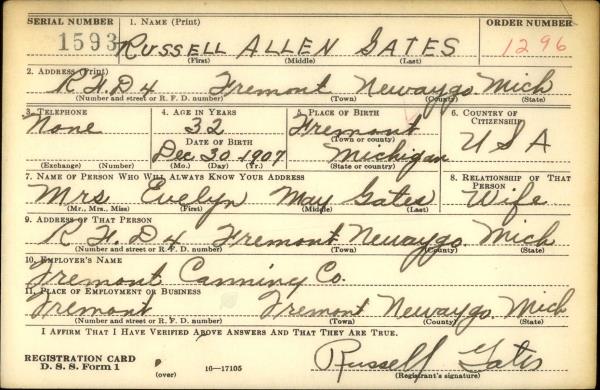 SERIAL NUMBER 1. NAME (Print) ORDER NUMBER
1593 RUSSELL ALLEN GATES 1296
(First) (Middle) (Last)
2. ADDRESS (Print)
R.F.D 4 Fremont Newaygo Mich
(Number and street or R. F. D. number) (Town) (County) (State)
3. TELEPHONE 4. AGE IN YEARS 5. PLACE OF BIRTH 6. COUNTRY OF CITIZENSHIP
None 32 Fremont USA
DATE OF BIRTH (Town or county)
Dec. 30 1907 Michigan
(Exchange) (Number) (Mo.) (Day) (Yr.) (State or country)
7. NAME OF PERSON WHO WILL ALWAYS KNOW YOUR ADDRESS 8. RELATIONSHIP OF THAT PERSON
Mrs Evelyn May Gates Wife
(Mr., Mrs., Miss) (First) (Middle) (Last)
9. ADDRESS OF THAT PERSON
R.F.D 4 Fremont Newaygo Mich
(Number and street or R. F. D. number) (Town) (County) (State)
10. EMPLOYER'S NAME
Fremont Canning Co.
11. PLACE OF EMPLOYMENT OR BUSINESS
Fremont Fremont Newaygo Mich
(Number and street or R. F. D. number) (Town) (County) (State)
I AFFIRM THAT I HAVE VERIFIED ABOVE ANSWERS AND THAT THEY ARE TRUE.
REGISTRATION CARD
D. S. S. Form 1 (over) 16—17105 Russell Gates
(Registrant's signature)